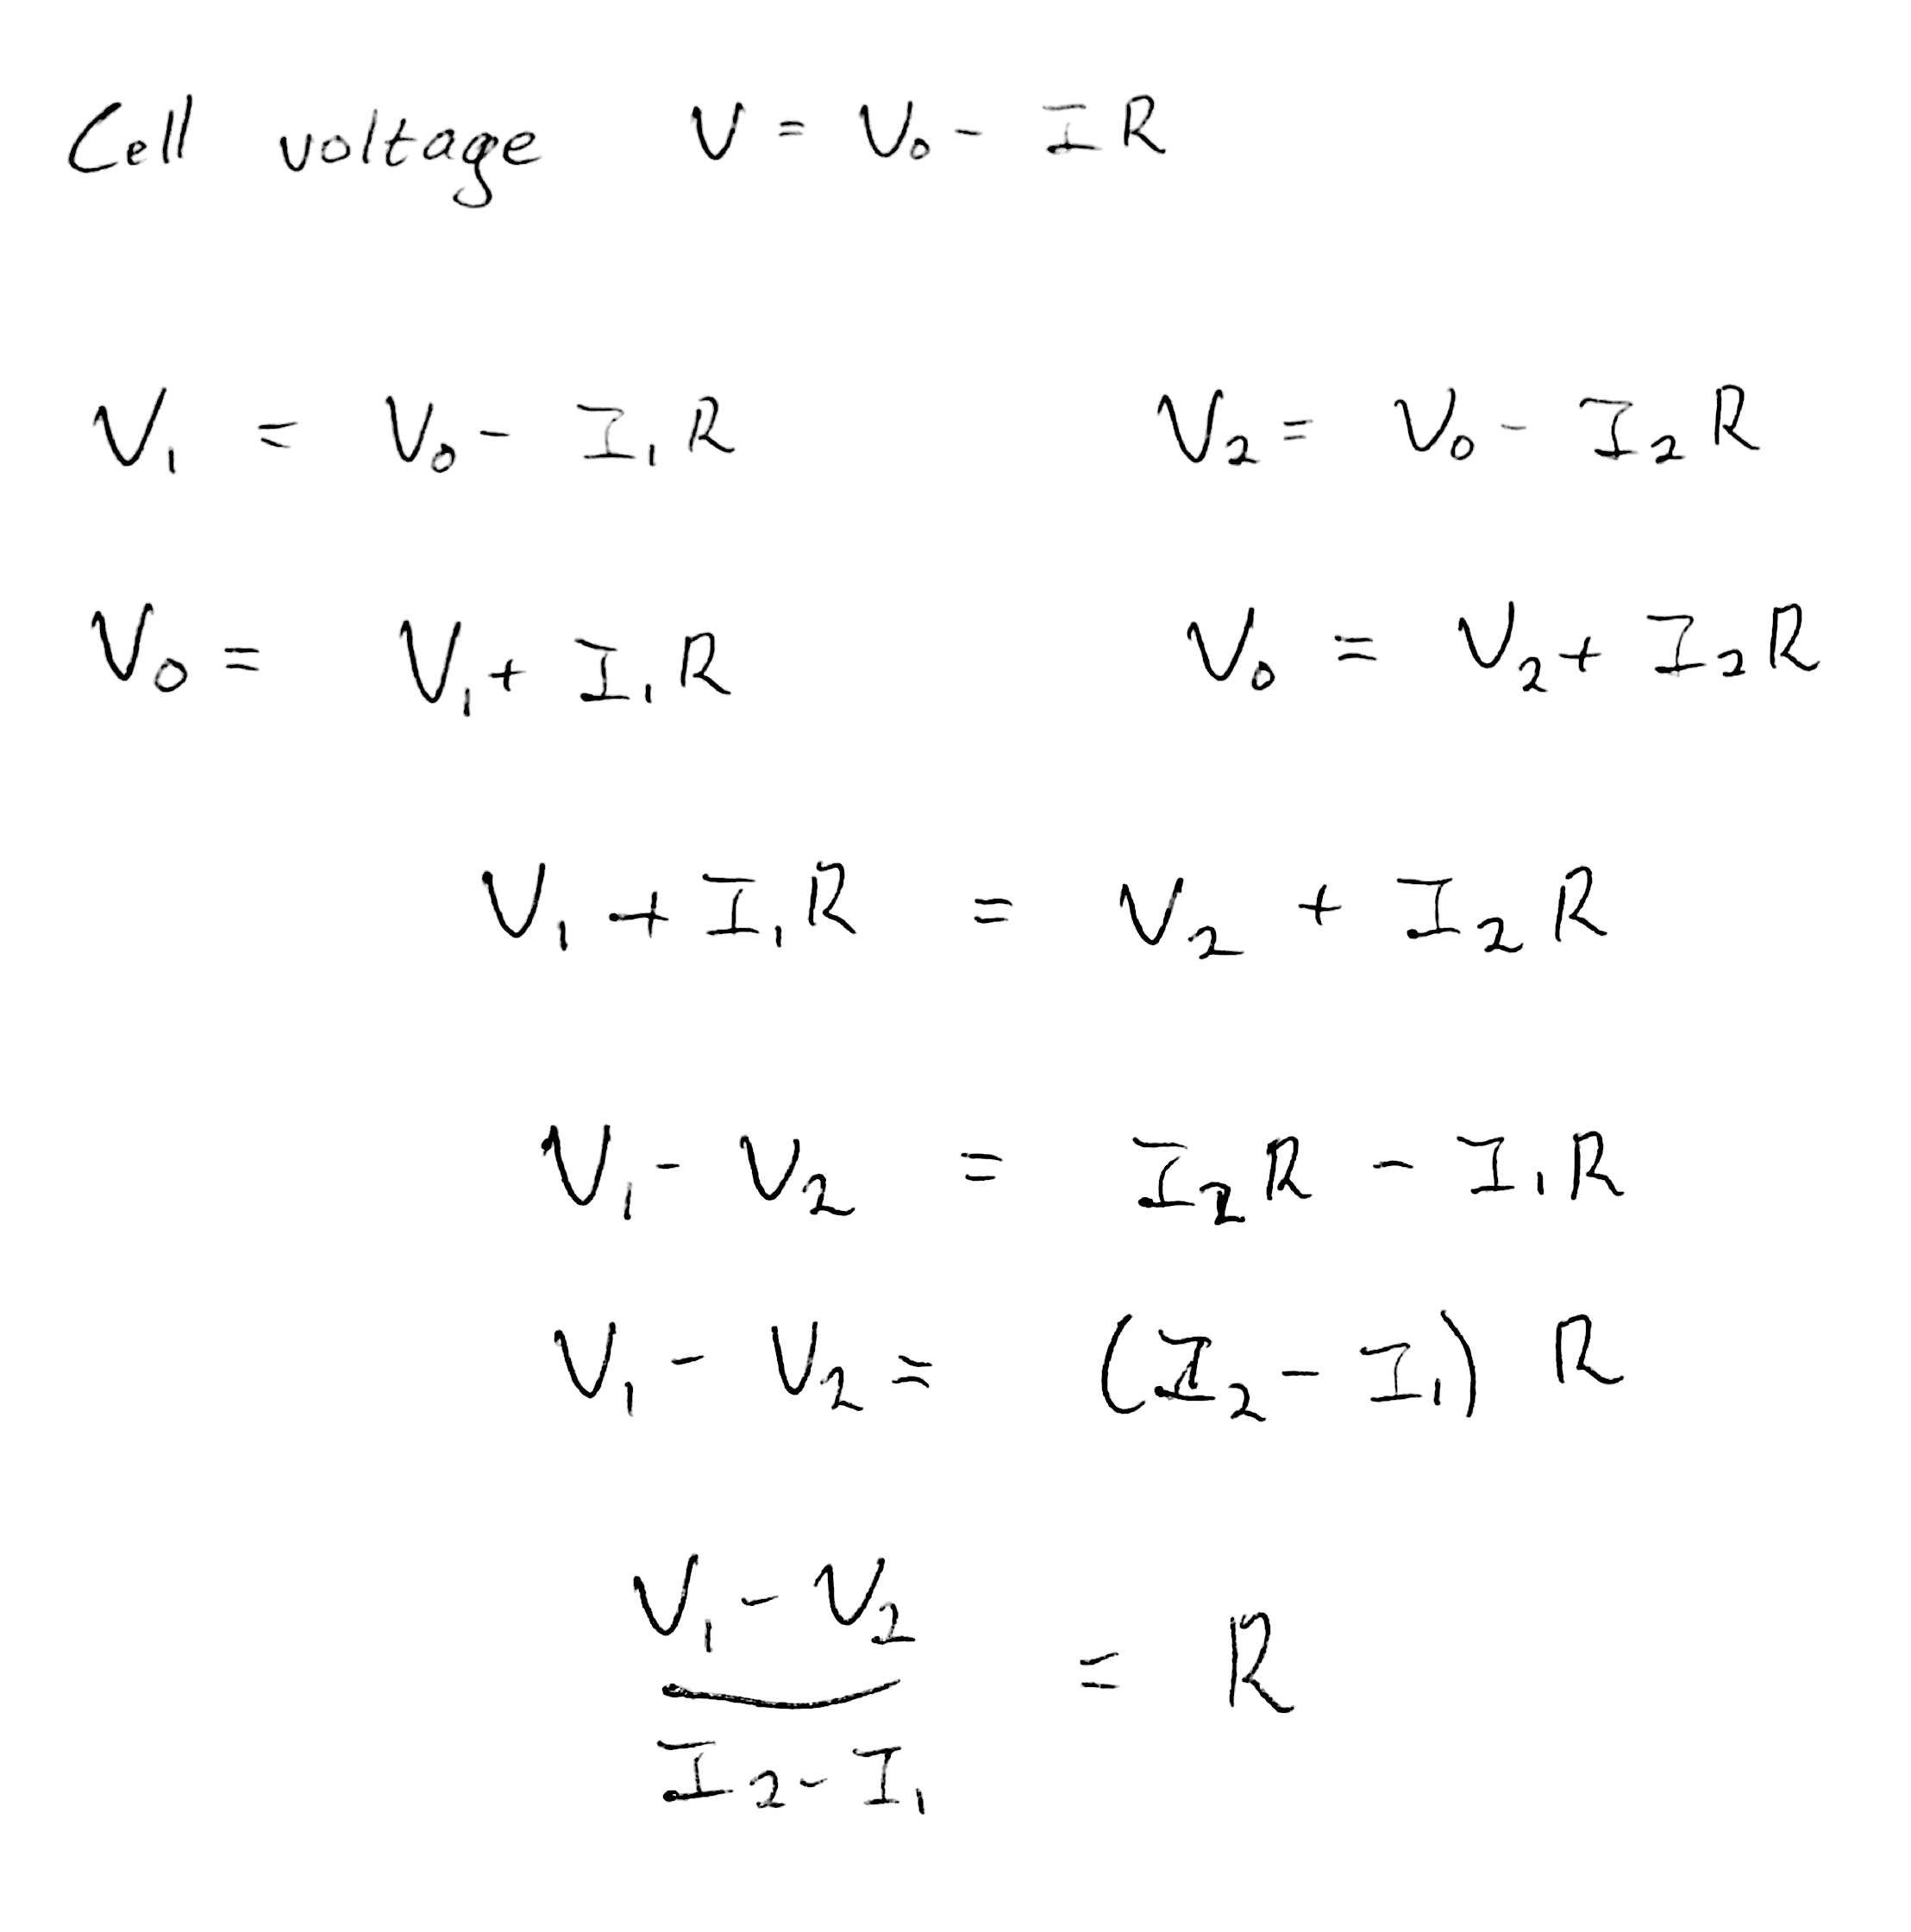 Cell voltage V = V₀ - IR
V₁ = V₀ - I₁R V₂ = V₀ - I₂R
V₀ = V₁ + I₁R V₀ = V₂ + I₂R
V₁ + I₁R = V₂ + I₂R
V₁ - V₂ = I₂R - I₁R
V₁ - V₂ = (I₂ - I₁) R
V₁ - V₂
= R
I₂ - I₁